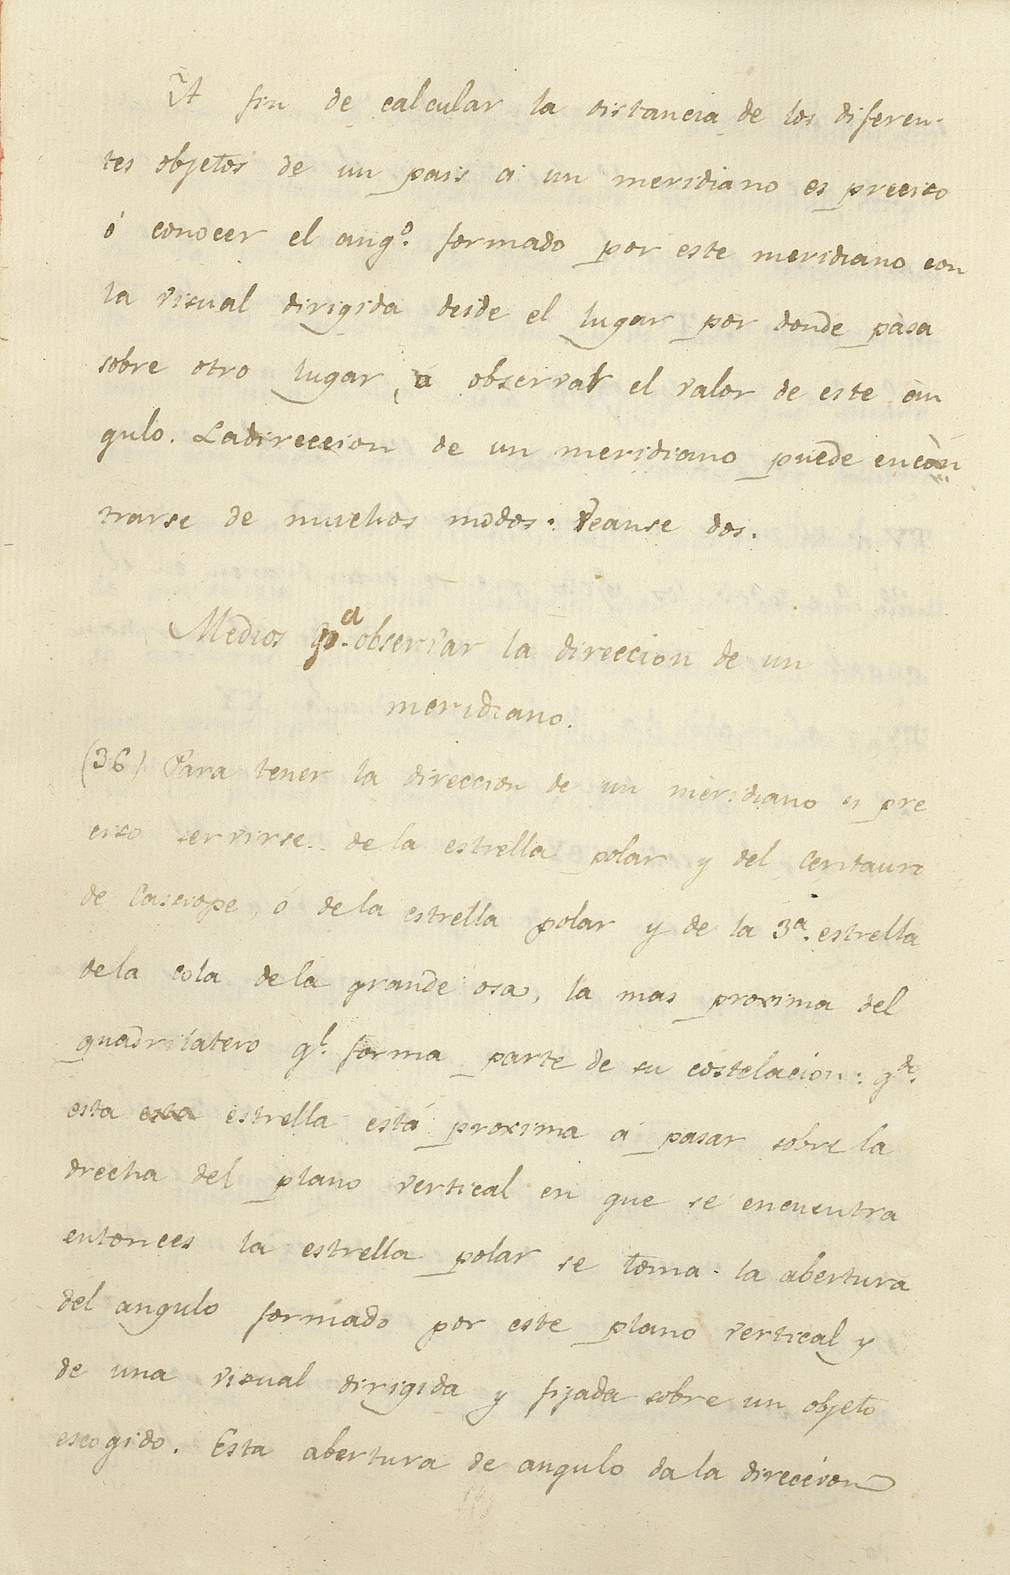 A fin de calcular la distancia de los diferen-
tes objetos de un pais á un meridiano es preciso
ó conocer el angº. formado por este meridiano con
la visual dirigida desde el lugar por donde pasa
sobre otro lugar, o observar el valor de este án
gulo. La direccion de un meridiano puede encon
trarse de muchos modos. Veanse dos.
Medios pª. observar la direccion de un
meridiano.
(36) Para tener la direccion de un meridiano es pre
ciso servirse de la estrella polar y del Centauro
de Casciope, ó de la estrella polar y de la 3ª. estrella
de la cola de la grande osa, la mas proxima del
quadrilatero q^l. forma parte de su costelacion: q^do.
esta esta estrella está proxima á pasar sobre la
drecha del plano vertical en que se encuentra
entonces la estrella polar se toma la abertura
del angulo formado por este plano vertical y
de una visual dirigida y fijada sobre un objeto
escogido. Esta abertura de angulo da la direccion